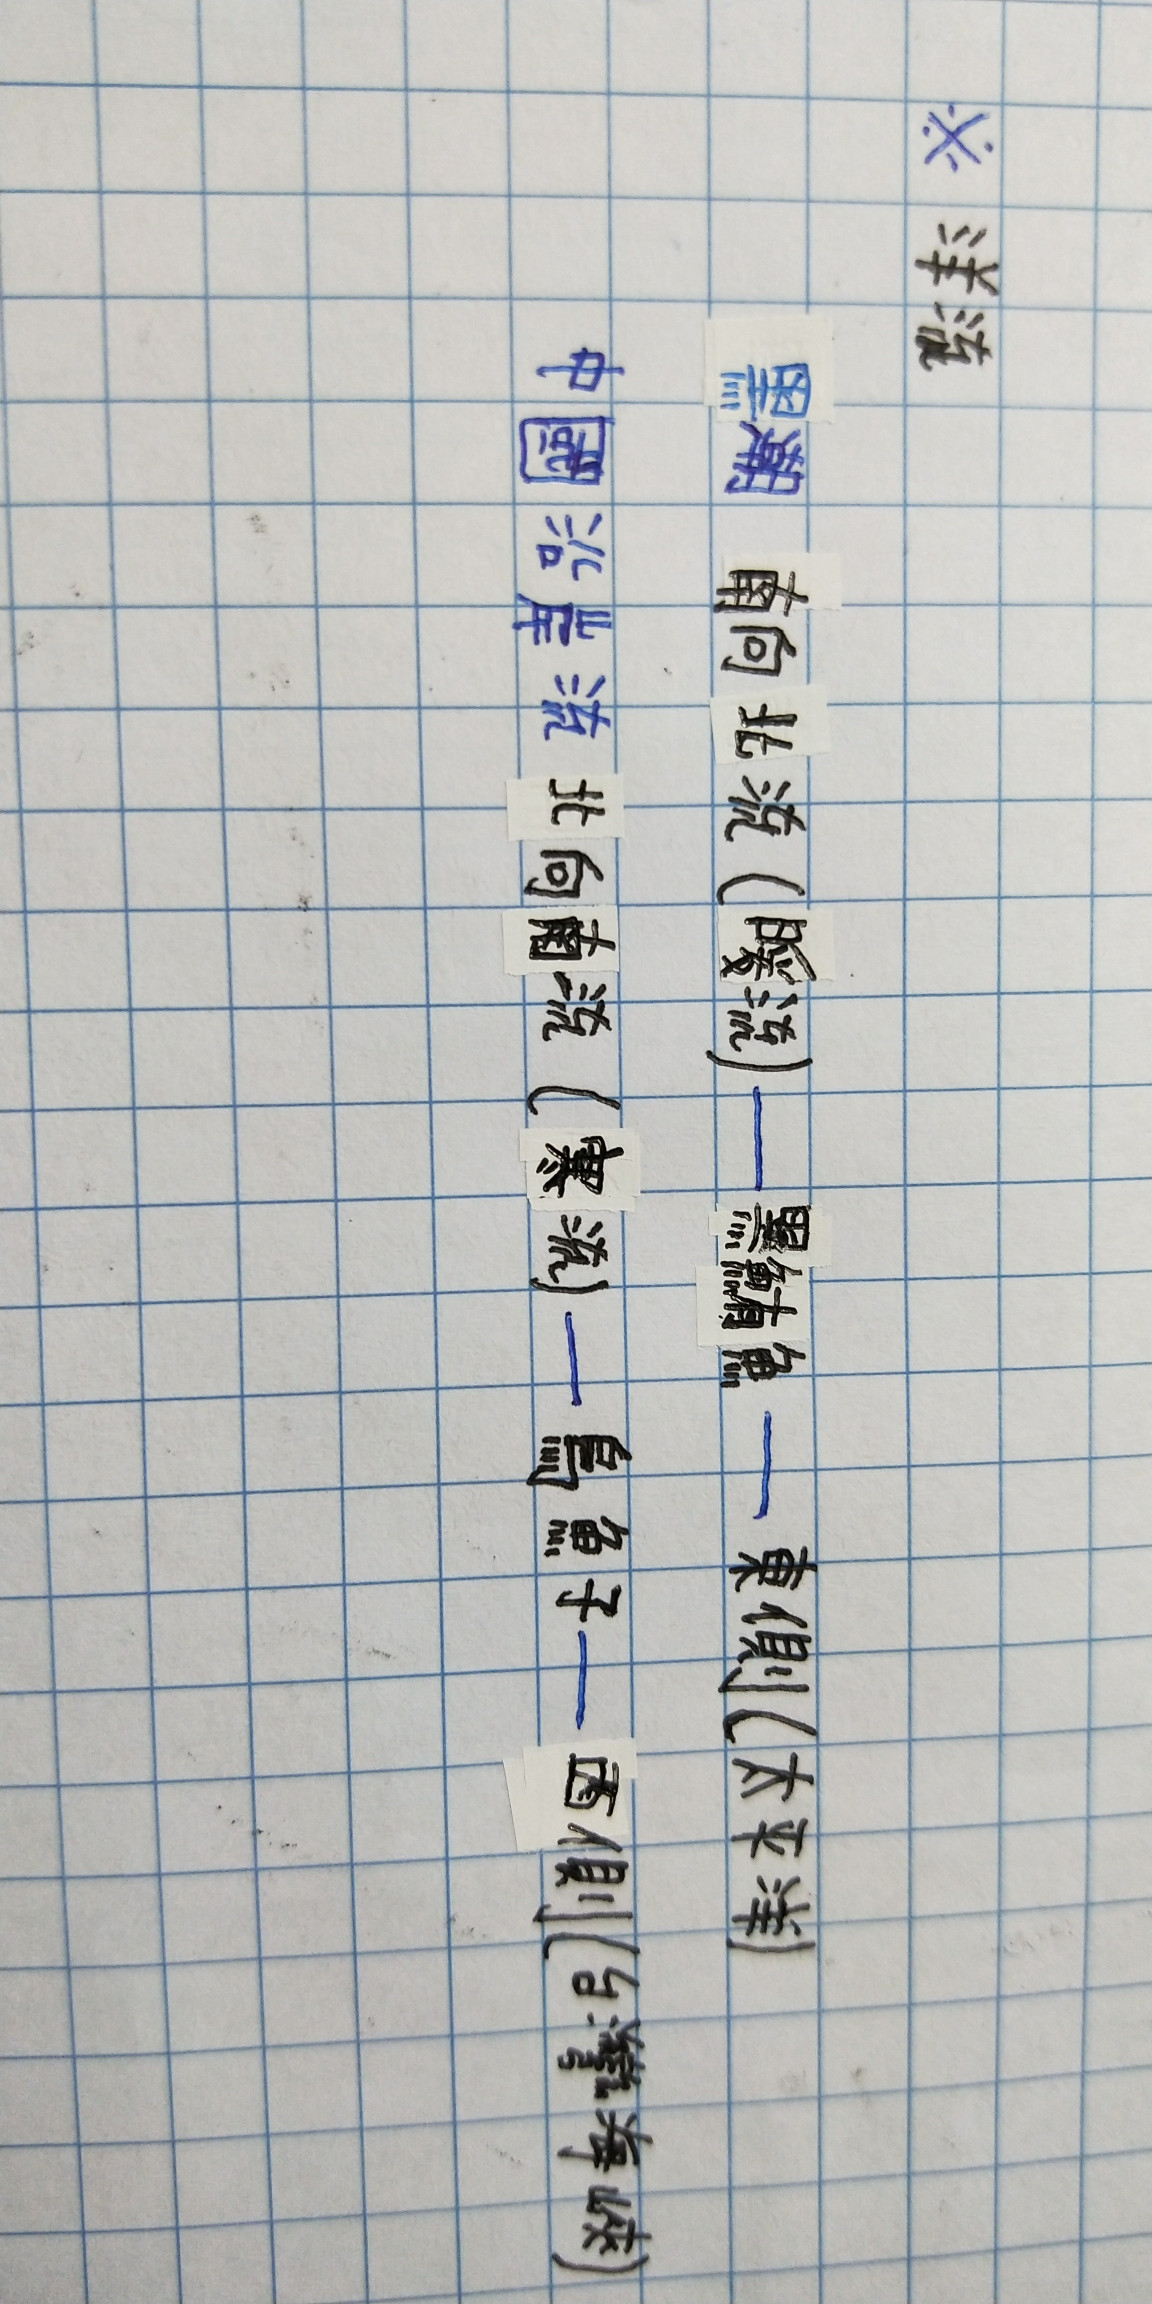 ※ 洋流
黑潮 南向北流(暖流)—黑鮪魚—東側(太平洋)
中國沿岸流 北向南流(寒流)—烏魚子—西側(台灣海峽)